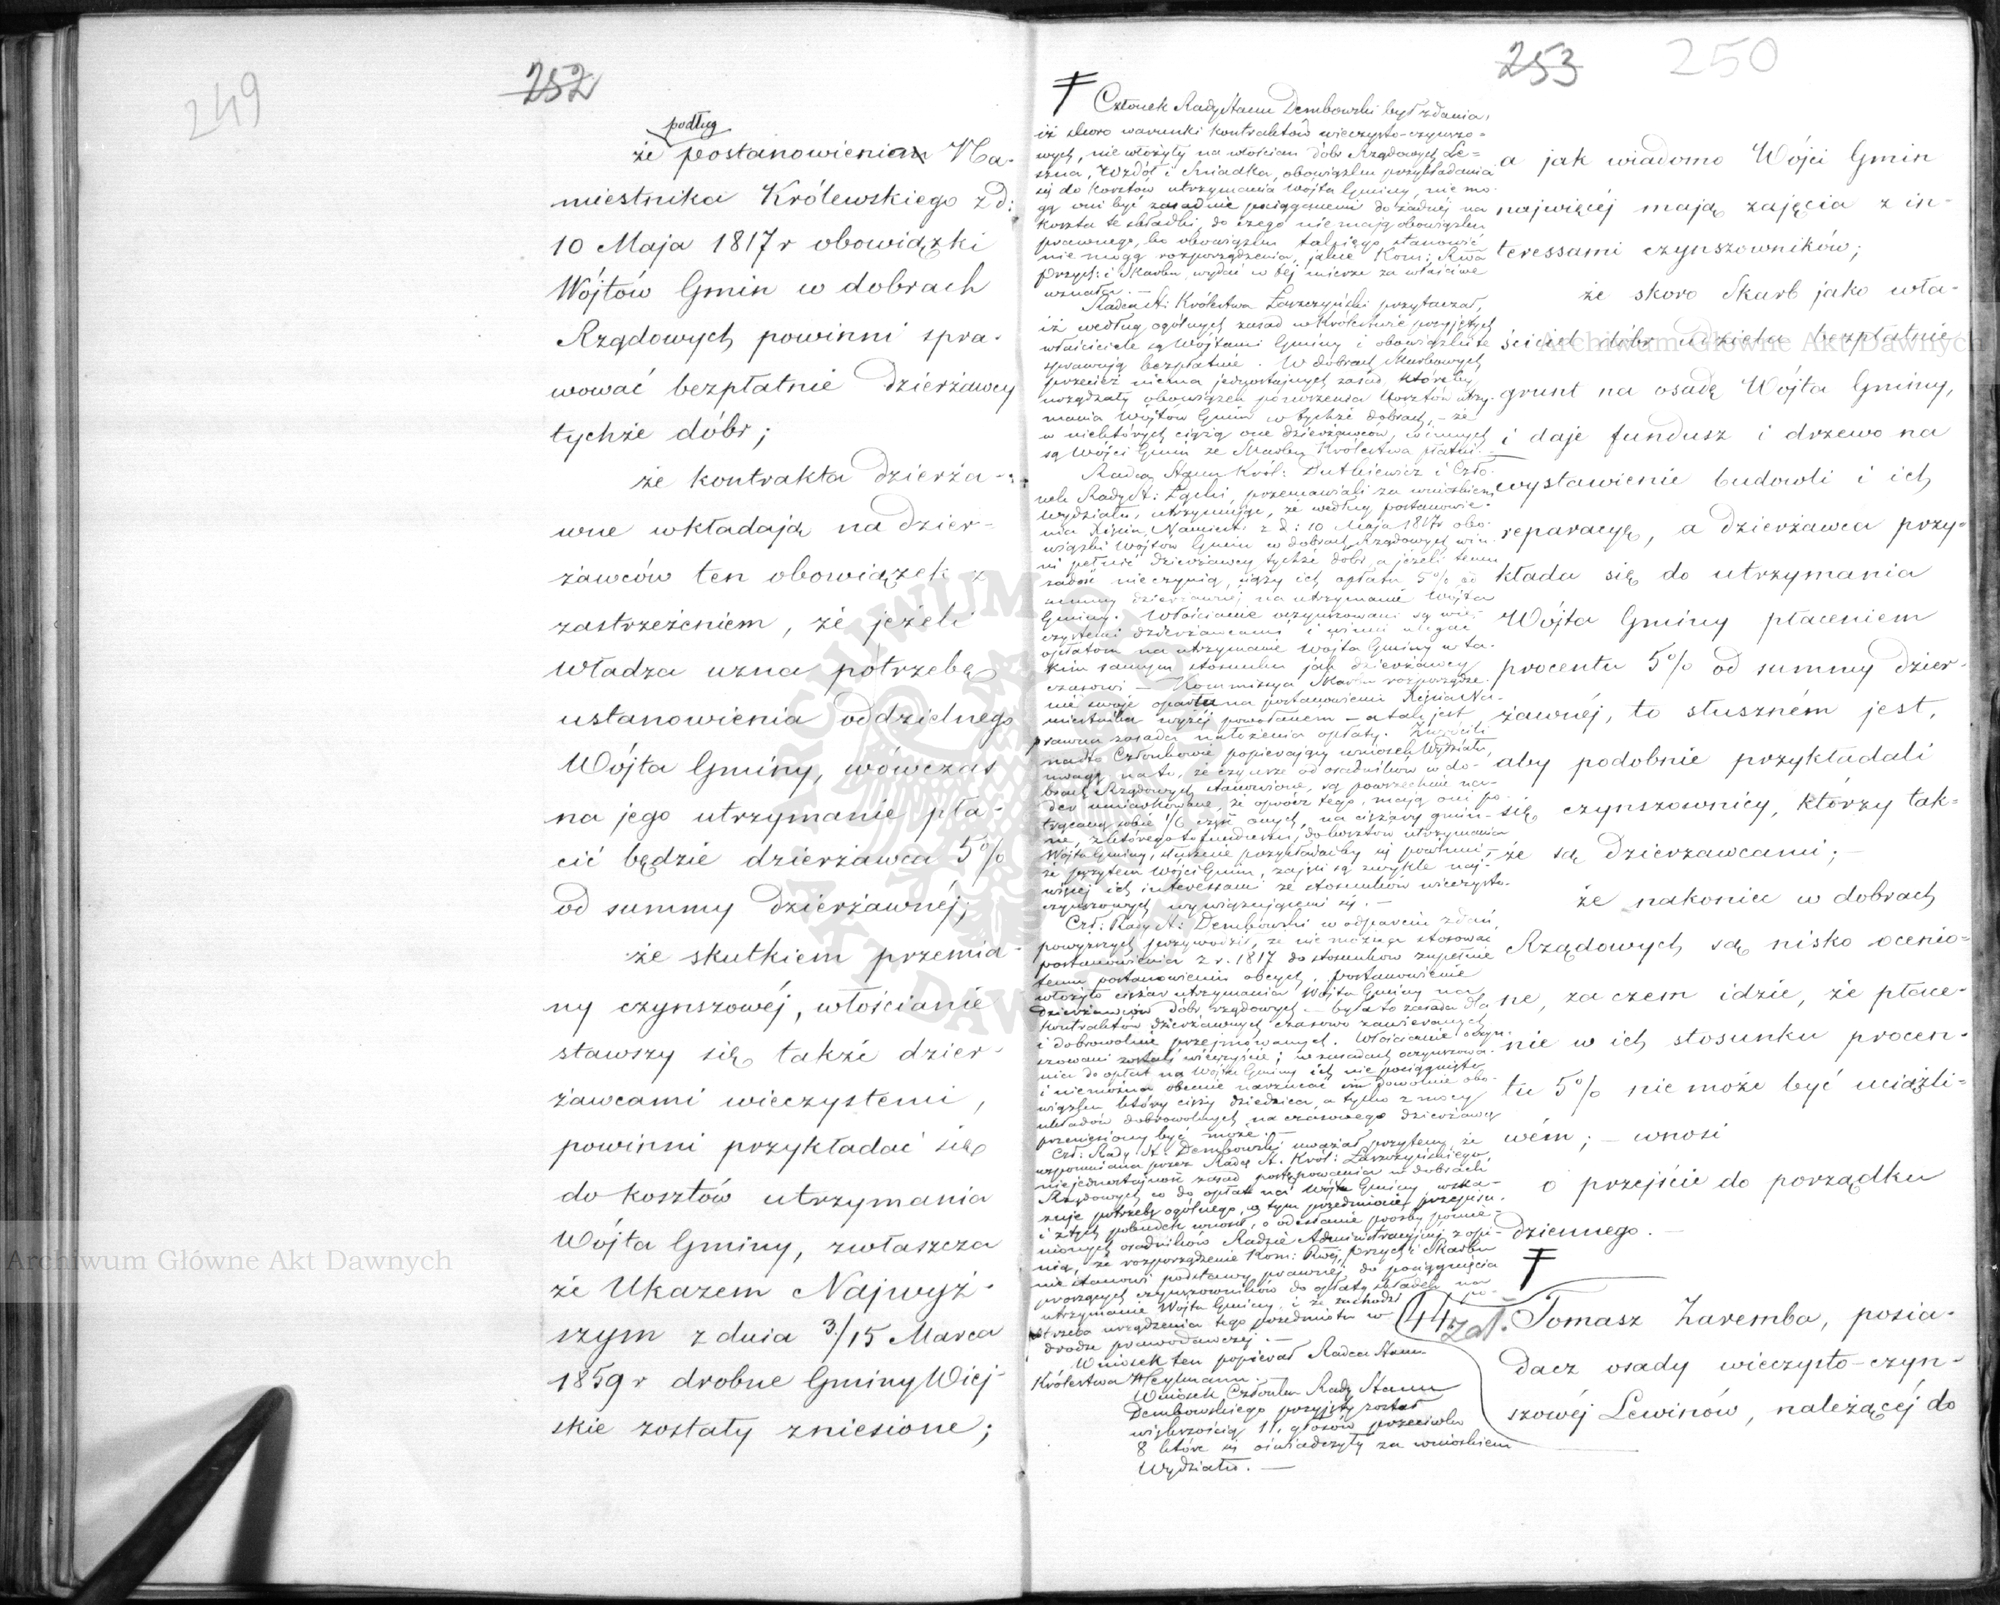 249
252
podług
że postanowieniem Na-
miestnika Królewskiego z d:
10 Maja 1817 r obowiązki
Wójtów Gmin w dobrach
Rządowych powinni spra-
wować bezpłatnie dzierżawcy
tychże dóbr;
że kontrakta dzierża-
wne wkładają na dzier-
żawców ten obowiązek z
zastrzeżeniem, że jeżeli
Władza uzna potrzebę
ustanowienia oddzielnego
Wójta Gminy, wówczas
na jego utrzymanie pła-
cić będzie dzierżawca 5%
od summy dzierżawnéj;
że skutkiem przemia-
ny czynszowéj, włościanie
stawszy się także dzier-
żawcami wieczystemi,
powinni przykładać się
do kosztów utrzymania
Wójta Gminy, zwłaszcza
że Ukazem Najwyż-
szym z dnia 3/15 Marca
1859 r drobne Gminy Wiej-
skie zostały zniesione;
253
250
Członek Rady Stanu Dembowski był zdania,
iż skoro warunki kontraktów wieczysto-czynszo-
wych, nie włożyły na włościan dóbr Rządowych Le-
szna, Wzdół i Śniadka, obowiązku przykładania
się do kosztów utrzymania Wójta Gminy, nie mo-
gą oni być zasadnie pociągnieni do żadnéj na
koszta te składki, do czego nie mają obowiązku
prawnego, bo obowiązku takiego stanowić
nie mogą rozporządzenia, jakie Kom: Rwa
Przych: i Skarbu wydać w téj mierze za właściwe
uznała. —
Radca St: Królestwa Łaszczyński przytaczał,
iż według ogólnych zasad w Królestwie przyjętych
właściciele są Wójtami Gminy i obowiązki te
sprawują bezpłatnie. W dobrach Skarbowych
przecież niema jednostajnych zasad, któreby
urządzały obowiązek ponoszenia kosztów utrzy-
mania Wójtów Gmin w tychże dobrach, — że
w niektórych ciężą one dzierżawców, w innych
są Wójci Gmin ze Skarbu Królestwa płatni. —
Radca Stanu Król: Dutkiewicz i Czło-
nek Rady St: Łęcki, przemawiali za wnioskiem
Wydziału, utrzymując, że według postanowie-
nia Księcia Namiest: z d: 10 Maja 1817r obo-
wiązki Wójtów Gmin w dobrach Rządowych win-
ni pełnić dzierżawcy tychże dóbr, a jeżeli temu
zadość nie czynią, ciąży ich opłata 5% od
summy dzierżawnéj na utrzymanie Wójta
Gminy. Włościanie oczynszowani są wie-
czystemi dzierżawcami i winni ulegać
opłatom na utrzymanie Wójta Gminy w ta-
kim samym stosunku jak dzierżawcy
czasowi. — Kommissya Skarbu rozporządze-
nie swoje oparła na postanowieniu Księcia Na-
miestnika wyżéj powołanem — a tak jest
prawna zasada nałożenia opłaty. Zwrócili
nadto Członkowie popierający wniosek Wydziału,
uwagę na to, że czynsze od osadników w do-
brach Rządowych stanowione, są powszechnie na-
der umiarkowane, że oprócz tego, mają oni po-
trącaną sobie 1/6 część onych, na ciężary gmin-
ne, z którego to funduszu, do kosztów utrzymania
Wójta Gminy, słusznie przykładaćby się powinni;
że przytem Wójci Gmin, zajęci są zwykle naj-
więcej ich interessami ze stosunków wieczysto-
czynszowych wywiązującemi się. —
Czł: Rady St: Dembowski w odparciu zdań
powyższych przywodził, że nie można stosować
postanowienia z r. 1817 do stosunków zupełnie
temu postanowieniu obcych. Postanowienie
włożyło ciężar utrzymania Wójta Gminy na
dzierżawców dóbr rządowych — była to zasada dla
kontraktów dzierżawnych czasowo zawieranych
i dobrowolnie przejmowanych. Włościanie oczyn-
szowani zostali wieczyście; w zasadach oczynszowa-
nia do opłat na Wójta Gminy ich nie pociągnięto
i niemożna obecnie narzucać im dowolnie obo-
wiązku, który ciąży dziedzica, a tylko z mocy
układów dobrowolnych na czasowego dzierżawcę
przeniesiony być może. —
Czł: Rady St. Dembowski uważał przytem, że
wspomniana przez Radcę St. Król: Łaszczyńskiego,
niejednostajność zasad postępowania w dobrach
Rządowych co do opłat na Wójta Gminy wska-
zuje potrzebę ogólnego, w tym przedmiocie przepisu
i z tych pobudek wnosił, o odesłanie prośby pomie-
nionych osadników Radzie Administracyjnéj z opi-
nią, że rozporządzenie Kom: Rwéj Przych: i Skarbu
nie stanowi podstawy prawnéj do pociągnięcia
proszących czynszowników do opłaty składek na
utrzymanie Wójta Gminy, i że zachodzi po-
trzeba urządzenia tego przedmiotu w
drodze prawodawczéj. —
Wniosek ten popierał Radca Stanu
Królestwa Heylmann.
Wniosek Członka Rady Stanu
Dembowskiego przyjęty został
większością 11, głosów przeciwko
8 które się oświadczyły za wnioskiem
Wydziału. —
a jak wiadomo Wójci Gmin
najwięcéj mają zajęcia z in-
teressami czynszowników;
że skoro Skarb jako wła-
ściciel dóbr udziela bezpłatnie
grunt na osadę Wójta Gminy,
i daje fundusz i drzewo na
wystawienie budowli i ich
reparacyę, a dzierżawca przy-
kłada się do utrzymania
Wójta Gminy płaceniem
procentu 5% od summy dzier-
żawnéj, to słuszném jest,
aby podobnie przykładali
się czynszownicy, którzy tak-
że są dzierżawcami; —
że nakoniec w dobrach
Rządowych są nisko ocenio-
ne, zaczem idzie, że płace-
nie w ich stosunku procen-
tu 5% nie może być uciążli-
wém; — wnosi
o przejście do porządku
dziennego. —
44
zał.
Tomasz Zaremba, posia-
dacz osady wieczysto-czyn-
szowéj Lewinów, należącéj do
Archiwum Główne Akt Dawnych
Archiwum Główne Akt Dawnych
ARCHIWUM GŁÓWNE AKT DAWNYCH